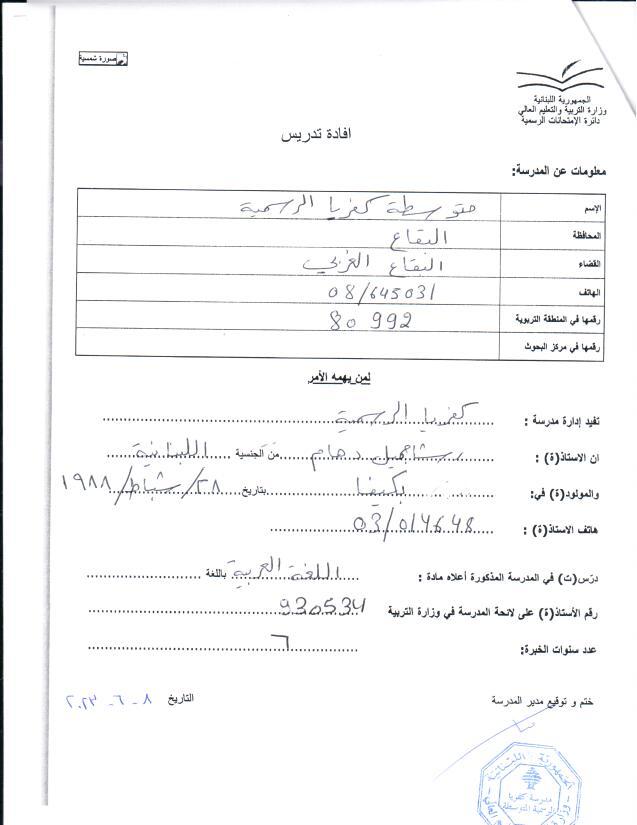 صورة شمسية
الجمهورية اللبنانية
وزارة التربية والتعليم العالي
دائرة الإمتحانات الرسمية
افادة تدريس
معلومات عن المدرسة:
الإسم متوسطة كفريا الرسمية
المحافظة البقاع
القضاء البقاع الغربي
الهاتف 08/645031
رقمها في المنطقة التربوية 80992
رقمها في مركز البحوث
لمن يهمه الأمر
تفيد إدارة مدرسة : كفريا الرسمية
ان الاستاذ(ة) : رشا جميل دهام من الجنسية اللبنانية
والمولود(ة) في: بكيفا بتاريخ ٢٨/شباط/١٩٨٨
هاتف الاستاذ(ة) : 03/014648
درّس(ت) في المدرسة المذكورة أعلاه مادة : اللغة العربية باللغة
رقم الأستاذ(ة) على لائحة المدرسة في وزارة التربية 930534
عدد سنوات الخبرة: ٦
ختم و توقيع مدير المدرسة
التاريخ ٨ - ٦ - ٢٠٢٣
الجمهورية اللبنانية
مدرسة كفريا
الرسمية المتوسطة